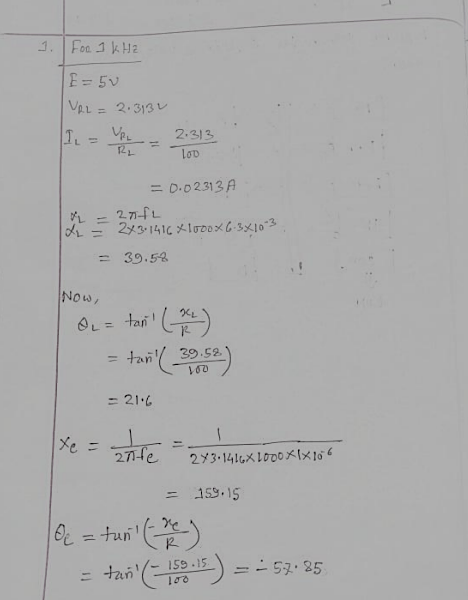 1. For 1 kHz
E = 5V
V_RL = 2.313V
I_L = V_RL / R_L = 2.313 / 100
= 0.02313A
X_L = 2πfL
X_L = 2×3.1416×1000×6.3×10^-3
= 39.58
Now,
θ_L = tan^-1 (x_L / R)
= tan^-1 (39.58 / 100)
= 21.6
X_c = 1 / 2πfc = 1 / 2×3.1416×1000×1×10^-6
= 159.15
θ_c = tan^-1 (-x_c / R)
= tan^-1 (-159.15 / 100) = -57.85